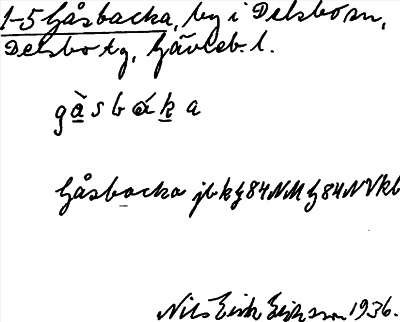 1-5 Gåsbacka, by i Delsbo sn,
Delsbo tg, Gävleb. l.
gàsbáka
Gåsbacka jbkg84NM g84NVkl
Nils Erik Eriksson 1936.